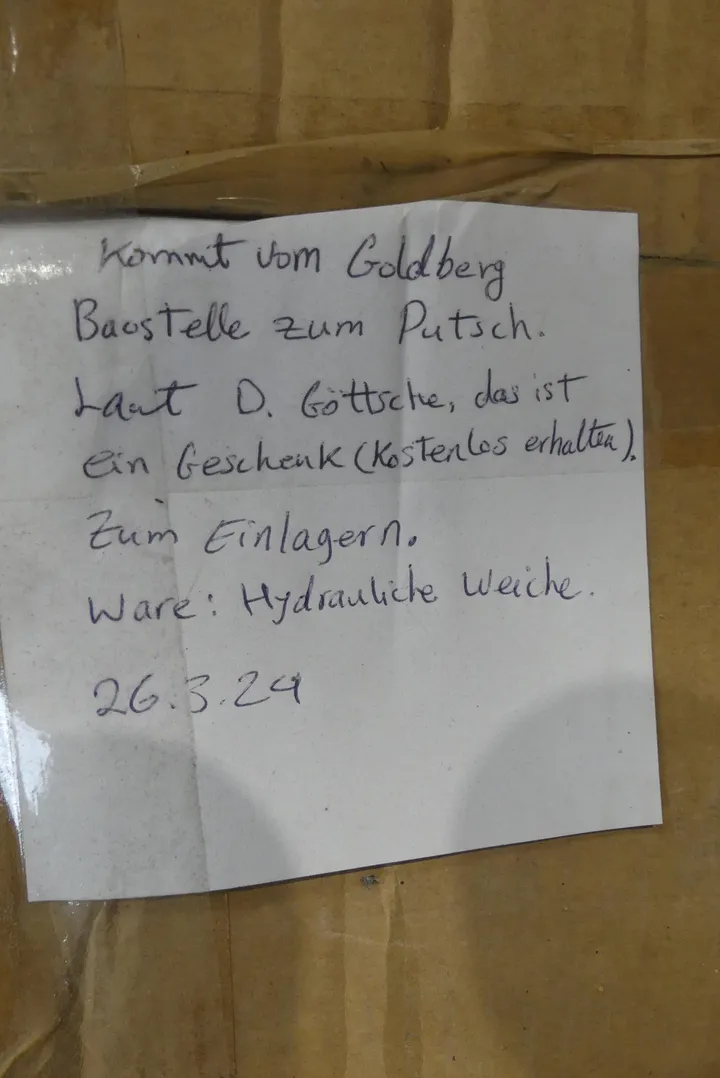 Kommt vom Goldberg
Baostelle zum Putsch.
Laut D. Göttsche, das ist
ein Geschenk (Kostenlos erhalten).
Zum Einlagern.
Ware: Hydrauliche Weiche.
26.3.24